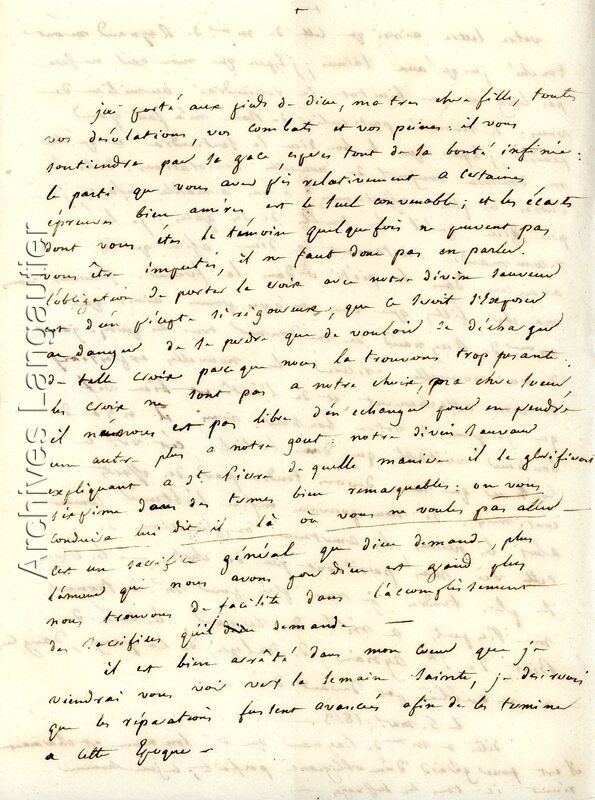 j'ai porté aux pieds de dieu, ma tres chere fille, toutes
vos désolations, vos combats et vos peines: il vous
soutiendra par sa grace, esperes tout de sa bonté infinie:
le parti que vous aves pris relativement a certaines
épreuves bien amères est le seul convenable; et les écarts
dont vous étes le témoin quelque fois ne peuvent pas
vous être imputés, il ne faut donc pas en parler.
l'obligation de porter la croix avec notre divin sauveur
est d'un précepte si rigoureux, que ce seroit s'exposer
au danger de se perdre que de vouloir se décharger
de telle croix parceque nous la trouvons trop pesante:
les croix ne sont pas a notre choix, ma chere soeur,
il ne nous est pas libre d'en echanger pour en prendre
un autre plus a notre gout: notre divin sauveur
expliquant a st. Pierre de quelle maniere il le glorifieroit
s'exprime dans des termes bien remarquables: on vous
conduira lui dit-il là où vous ne voules pas aller —
c'est un sacrifice général que dieu demande, plus
l'amour que nous avons pour dieu est grand, plus
nous trouvons de facilité dans l'accomplissement
des sacrifices qu'il demande —
il est bien arrêté dans mon coeur que je
viendrai vous voir vers la semaine sainte, je desirerois
que les réparations fussent avancées afin de les terminer
a cette Epoque —
Archives Langautier